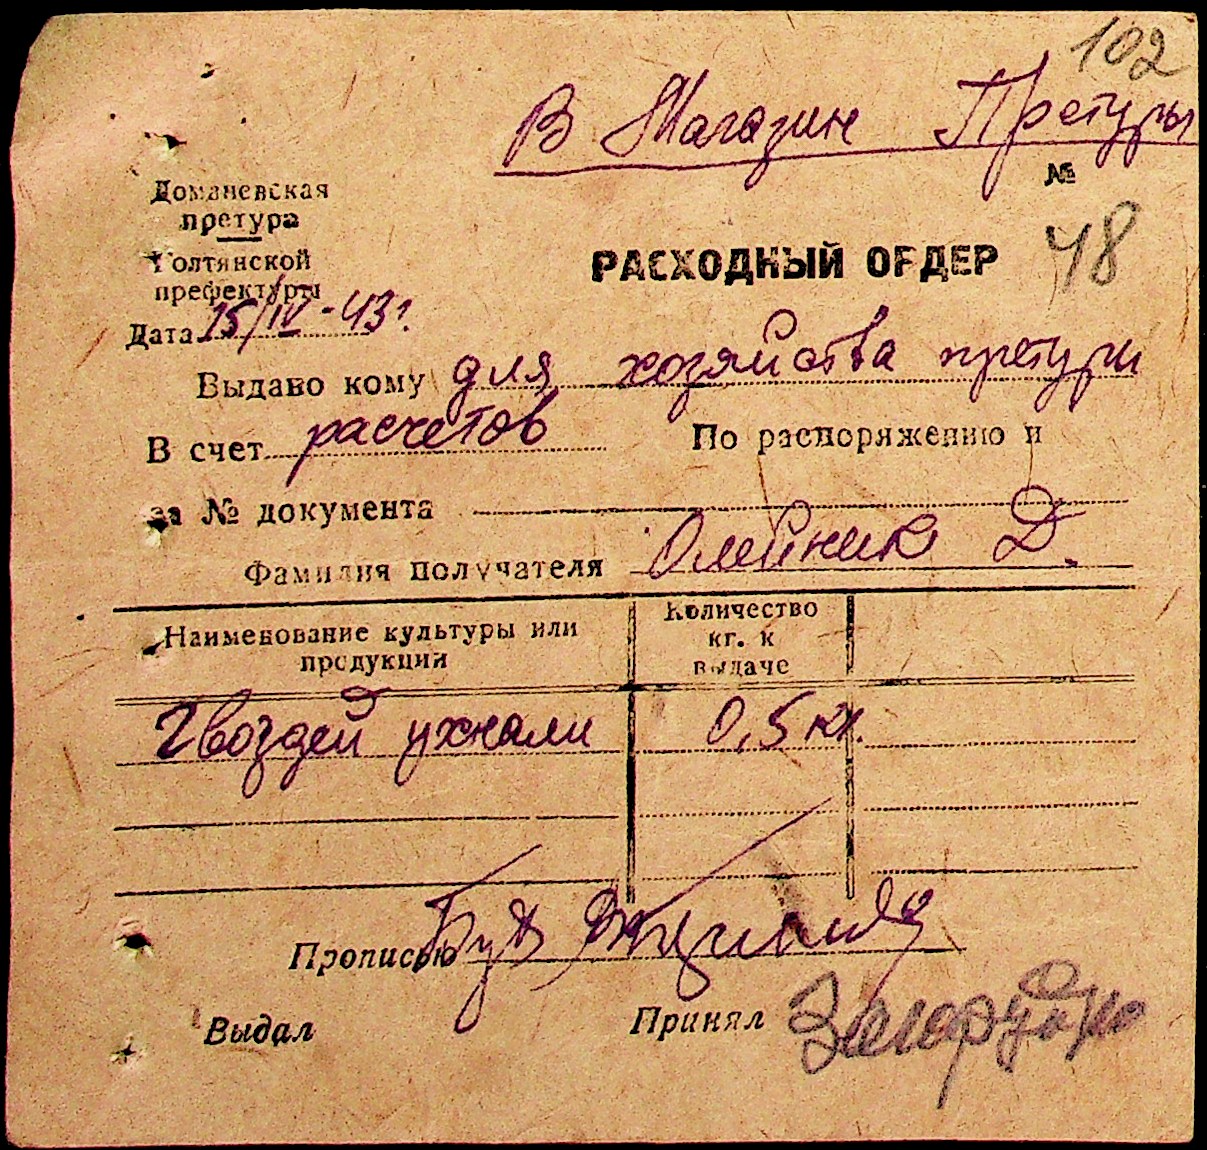 102
В Магазин Претуры
Доманевская
претура
Голтянской
префектуры
№
РАСХОДНЫЙ ОРДЕР 48
Дата 15/IV-43г.
Выдано кому для хозяйства претуры
В счет расчетов По распоряжению и
за № документа
Фамилия получателя Олейник Д.
Наименование культуры или
продукции
Количество
кг. к
выдаче
Гвоздей ухнали 0,5 кг.
Прописью Бух
Выдал Принял